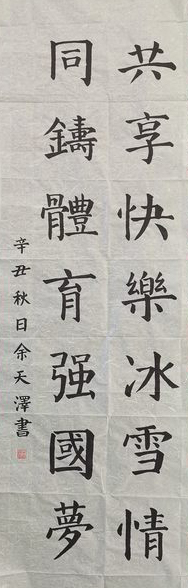 共享快樂冰雪情
同鑄體育强國夢
辛丑秋日余天澤書